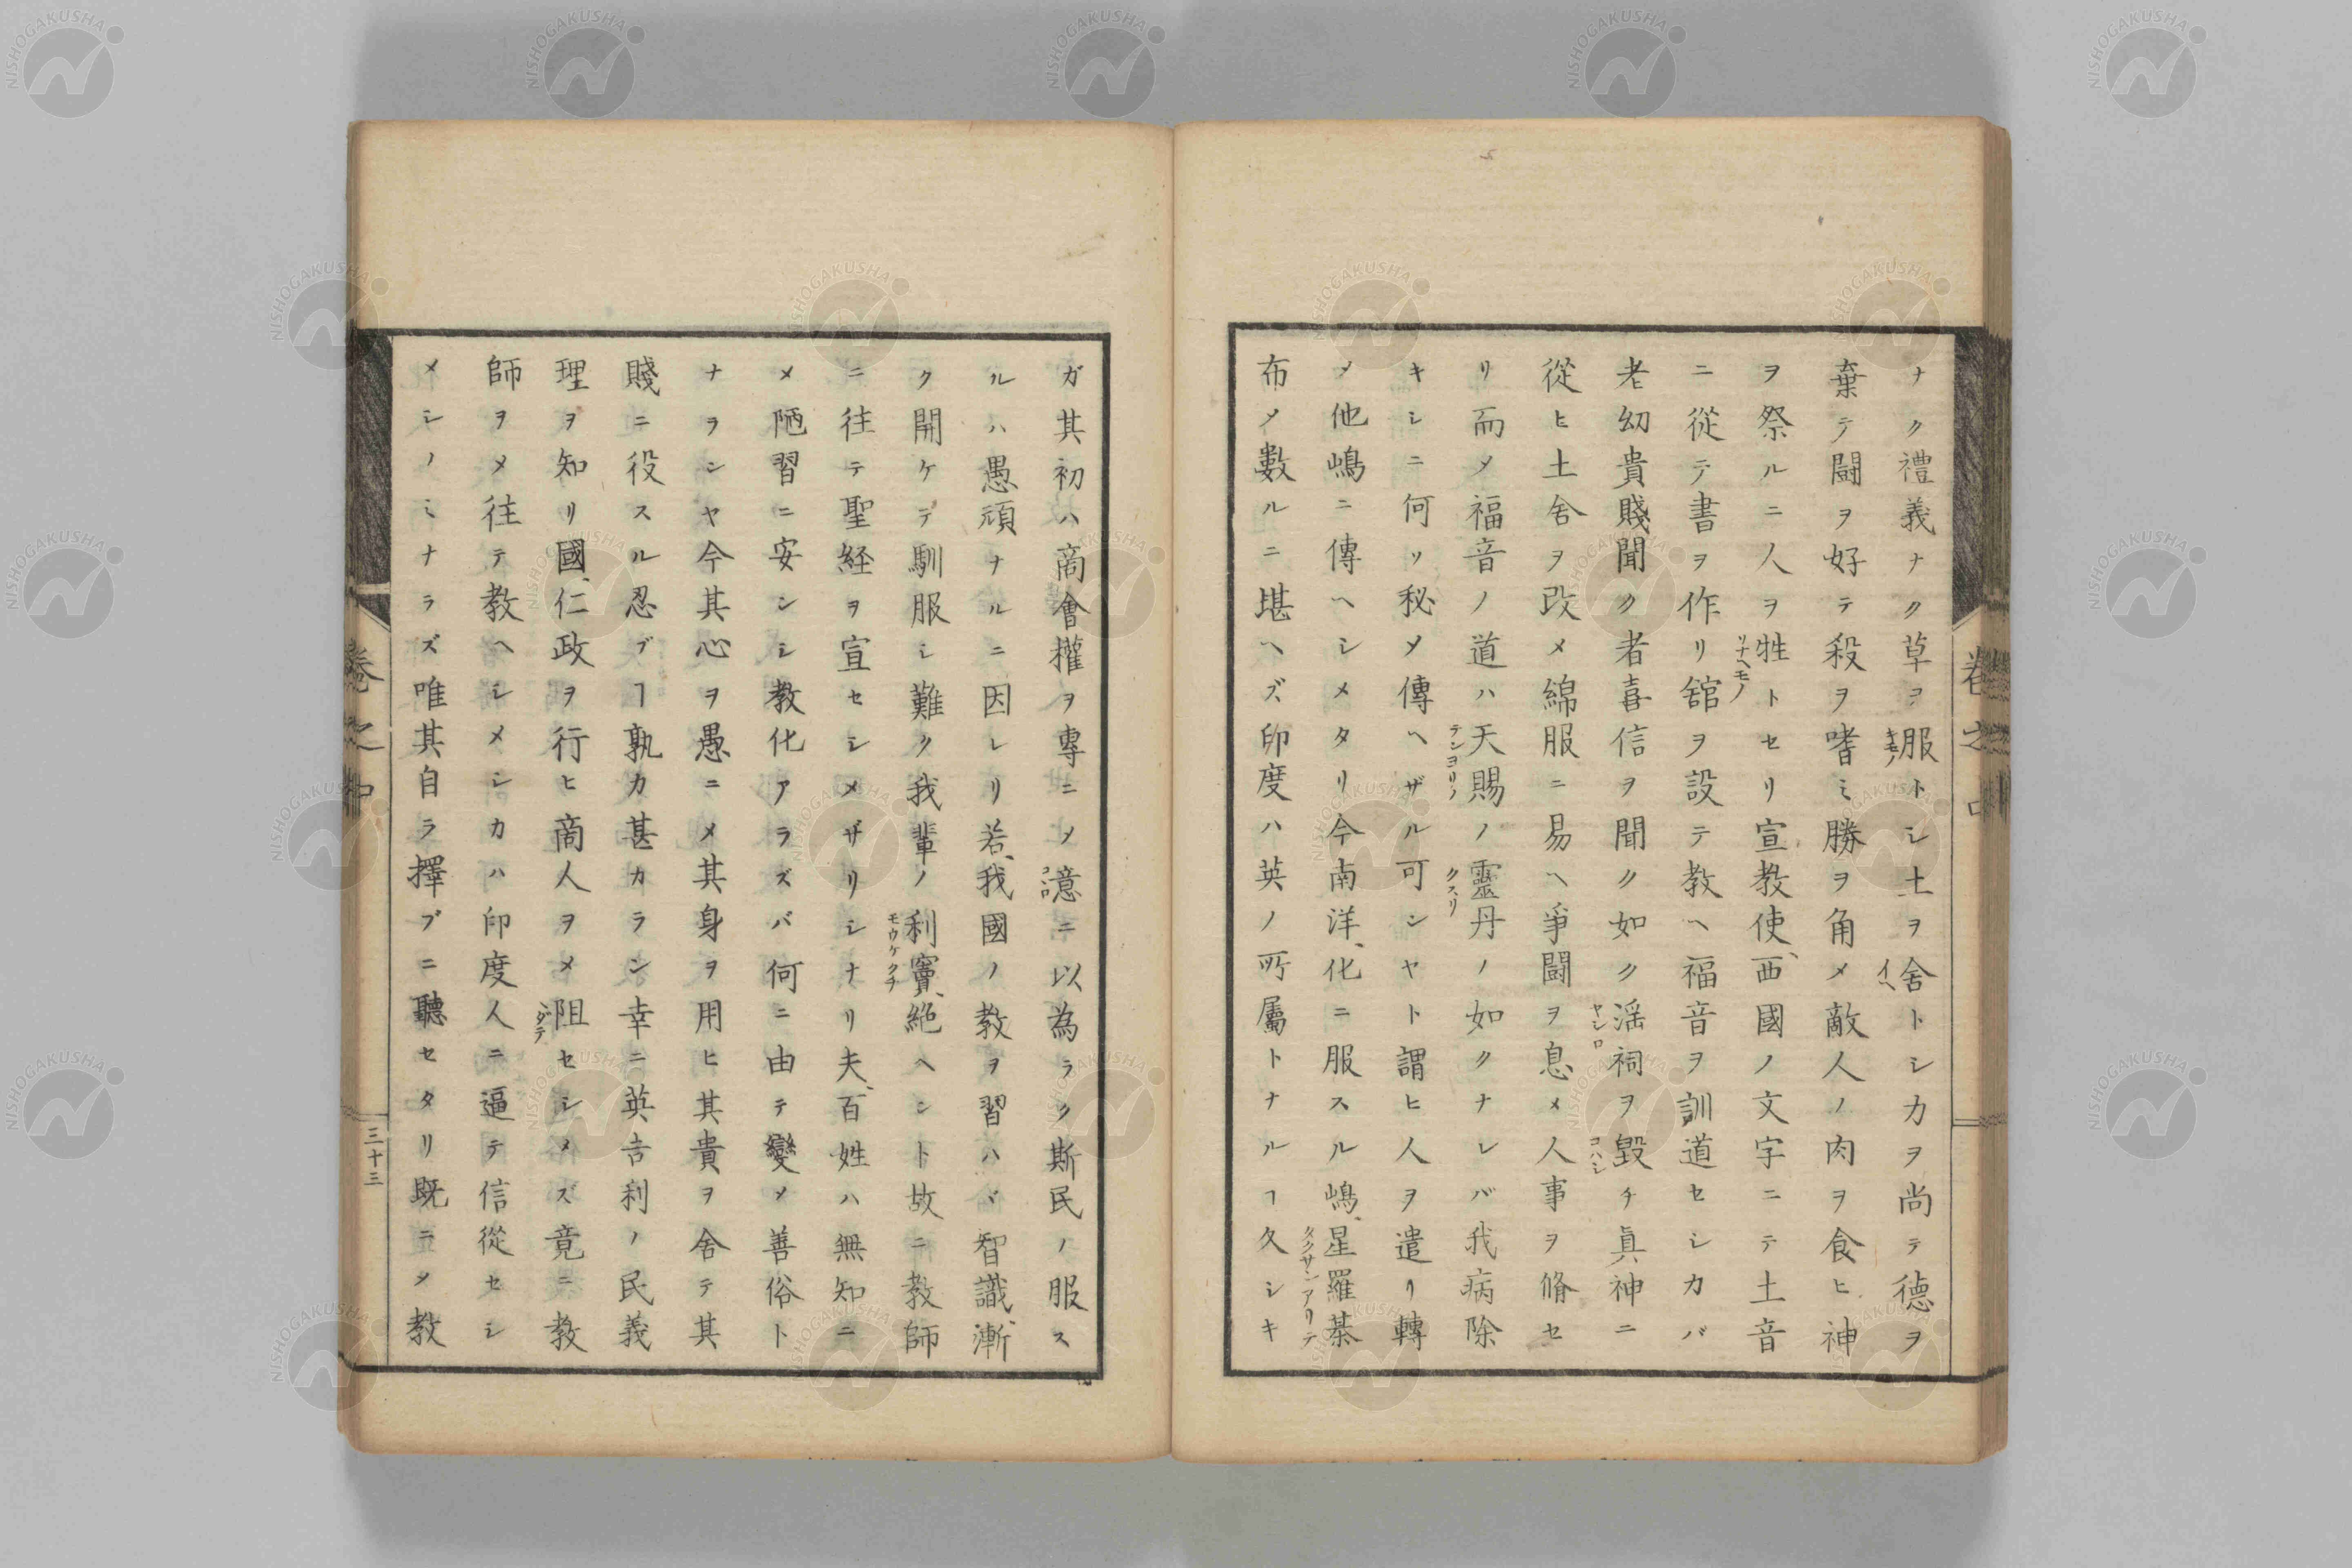 ナク禮義ナク草ヲ服トシ土ヲ舍トシカヲ尚テ德ヲ
棄テ鬪ヲ好テ殺ヲ嗜ミ勝ヲ角メ敵人ノ肉ヲ食ヒ神
ヲ祭ルニ人ヲ牲トセリ宣教使、西國ノ文字ニテ土音
ニ從テ書ヲ作リ舘ヲ設テ教ヘ福音ヲ訓道セシカバ
老幼貴賤聞ク者喜信ヲ聞ク如ク淫祠ヲ毀チ真神ニ
從ヒ土舍ヲ改メ綿服ニ易ヘ爭鬪ヲ息メ人事ヲ脩セ
リ而メ福音ノ道ハ天賜ノ靈丹ノ如クナレバ我病除
キシニ何ソ秘メ傳ヘザル可シヤト謂ヒ人ヲ遣リ轉
メ他嶋ニ傳ヘシメタリ今南洋、化ニ服スル嶋、星羅棊
布メ數ルニ堪ヘズ印度ハ英ノ所屬トナルヿ久シキ
ガ其初ハ商會權ヲ專ニメ意ニ以為ラク斯民ノ服ス
ルハ愚頑ナルニ因レリ若、我國ノ教ヲ習ハヾ智識、漸
ク開ケテ馴服シ難ク我輩ノ利竇、絶ヘント故ニ教師
ニ往テ聖経ヲ宣セシメザリシナリ夫、百姓ハ無知ニ
メ陋習ニ安ンシ教化アラズバ何ニ由テ變メ善俗ト
ナランヤ今其心ヲ愚ニメ其身ヲ用ヒ其貴ヲ舍テ其
賤ニ役スル忍ブヿ孰カ甚カラン幸ニ英吉利ノ民義
理ヲ知リ國、仁政ヲ行ヒ商人ヲメ阻セシメズ竟ニ教
師ヲメ往テ教ヘシメシカハ印度人ニ逼テ信從セシ
メシノミナラズ唯其自ラ擇ブニ聽セタリ既ニメ教
ソナヘモノ
キモノ
イヘ
ヤシロ
コハシ
テンヨリノ
クスリ
タクサンアリテ
コヽロ
モウケクチ
ジダテ
卷之中
卷之中
三十三
NISHOGAKUSHA